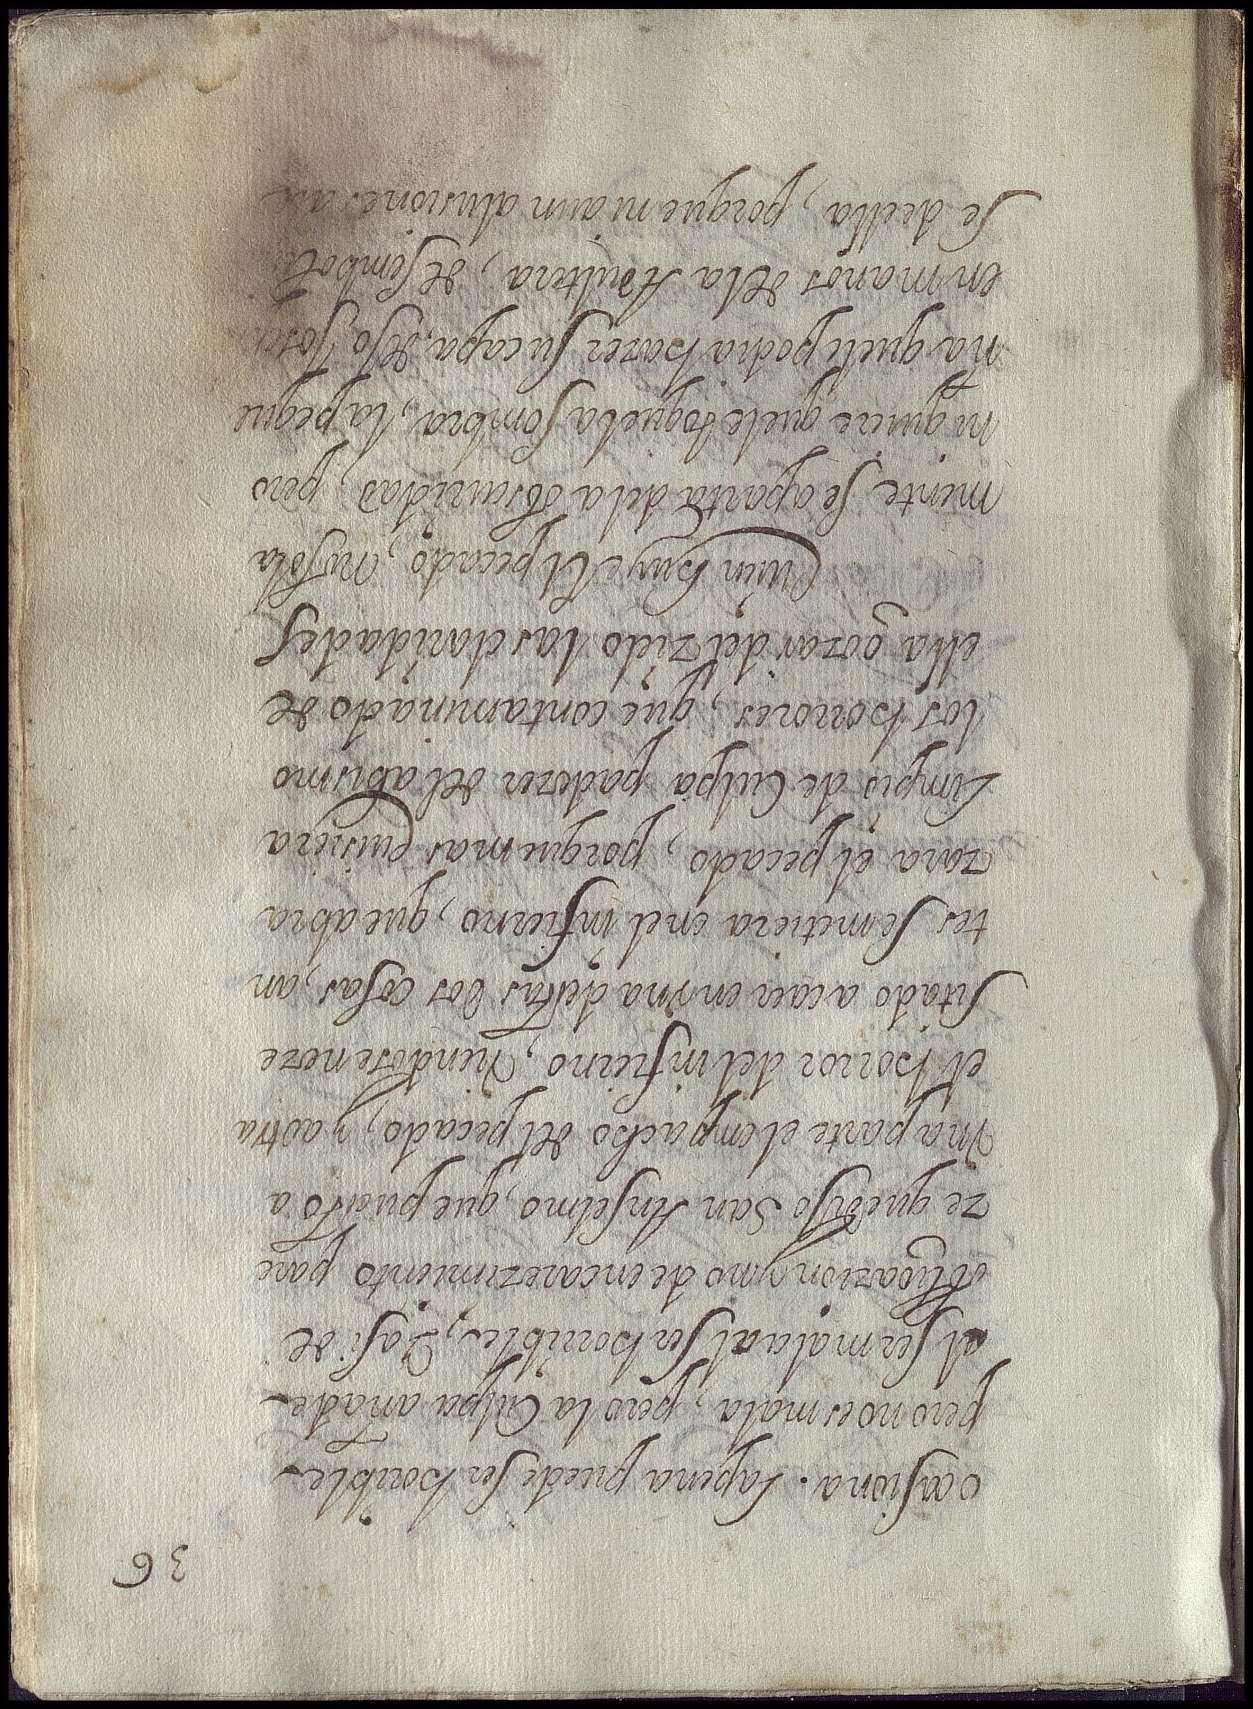 36
ocasiona. La pena puede ser horrible
pero no es mala, pero la Culpa añade
al ser mala al ser horrible, y asi de
obligazion y no de encarezimiento pare
ze que dixo San Anselmo, que puesto a
vna parte el empacho del pecado, y a otra
el horror del infierno, viendose neze
sitado a caer en vna destas dos cosas, an
tes se metiera en el infierno, que abra
zara el pecado, porque mas quisiera
Limpio de Culpa padezer del abismo
los horrores, que contaminado de
ella gozar del zielo las claridades
Quien huye el pecado, no sola
mente se aparta de la obscuridad, pero
ni quiere que le toque la sombra, la peque
ña que le podia hazer su capa, dexo Jose
en manos de la Adultera, desembol
se de ella, porque ni aun alusione